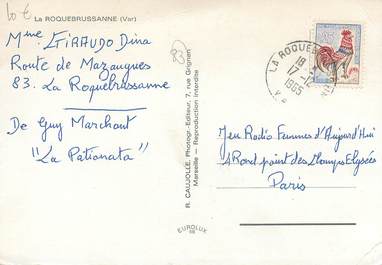 10 €
La ROQUEBRUSSANNE (Var)
Mme GIRAUDO Dina
Route de Mazaugues
83. La Roquebrussanne
De Guy Marchant
"La Pationata"
83
R. CAUJOLLE, Photogr.-Editeur, 7, rue Grignan
Marseille — Reproduction Interdite
EUROLUX
LA ROQUEB
18
17-12
1965
Jeu Radio Femmes d'Aujourd'hui
4 Rond point des Champs Elysées
Paris